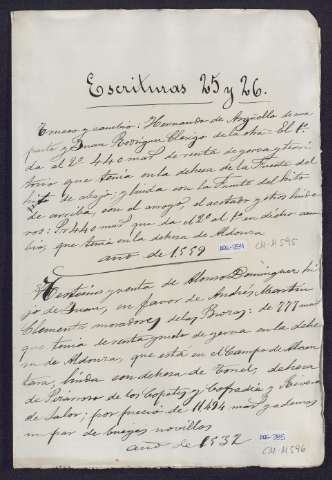 Escrituras 25 y 26.
Trueco y cambio: Hernando de Argüello de una
parte y Juan Rodriguez Clerigo de la otra - El 1º
da al 2º 440 mrs de renta de yerva y
que tenia en la dehesa de la Fuente del
hito de abajo; y linda con la Fuente del hito
de arriba, con el arroyo, el y otros linde
ros: Por 440 mrs que da el 2º al 1º en dicho cam
bio, que tenia en la dehesa de Aldonza
año de 1559
CM-M 595
venta de Alonso Dominguez hi
jo de Juan, en favor de Andrés Martin
Clemente, moradores de las Brozas: de 777 mrs
que tenia de renta y suelo de yerva en la dehe
sa de Aldonza, que está en el Campo de Alcan
tara, linda con dehesa de dehesa
de de los y Cofradia y Rivera
de Salor; por precio de 11494 mrs y ademas
un par de bueyes novillos
año de 1532
CM-M 596